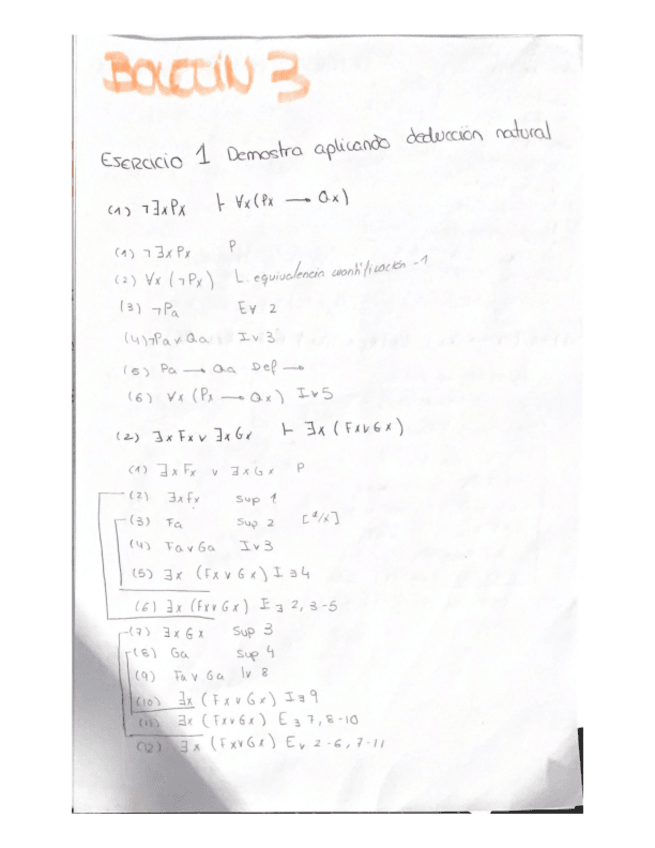 BOLETÍN 3
EJERCICIO 1 Demostra aplicando deducción natural
(1) ¬∃xPx ⊢ ∀x(Px → Qx)
(1) ¬∃xPx P
(2) ∀x (¬Px) L. equivalencia cuantificación -1
(3) ¬Pa E∀ 2
(4) ¬Pa ∨ Qa I∨ 3
(5) Pa → Qa Def →
(6) ∀x (Px → Qx) I∀ 5
(2) ∃xFx ∨ ∃xGx ⊢ ∃x (Fx∨Gx)
(1) ∃xFx ∨ ∃xGx P
(2) ∃xFx Sup 1
(3) Fa Sup 2 [a/x]
(4) Fa ∨ Ga I∨3
(5) ∃x (Fx ∨ Gx) I∃4
(6) ∃x (Fx∨Gx) I∃ 2, 3-5
(7) ∃xGx Sup 3
(8) Ga Sup 4
(9) Fa ∨ Ga I∨ 8
(10) ∃x (Fx ∨ Gx) I∃9
(11) ∃x (Fx∨Gx) E∃ 7, 8-10
(12) ∃x (Fx∨Gx) E∨ 2-6, 7-11